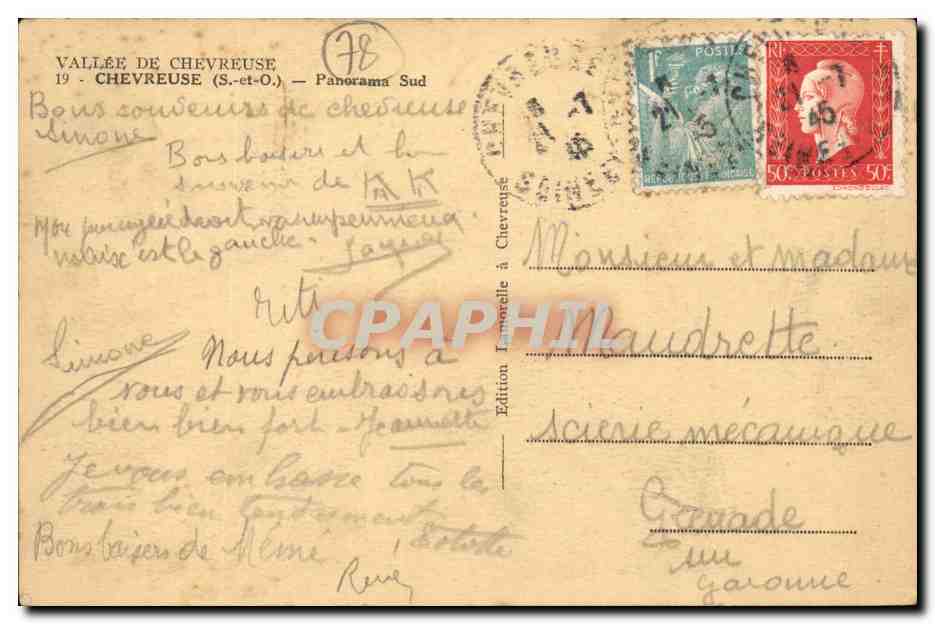 78
VALLÉE DE CHEVREUSE
19 - CHEVREUSE (S.-et-O.) — Panorama Sud
Bons souvenirs de chevreuse
Simone
Bons baisers et bon
souvenir de
est le gauche.
Nous pensons à
vous et vous embrassons
bien bien fort - Jeannette
Simone
Je vous embrasse tous les
trois bien tendrement
Bons baisers de Mémé
René
Edition Lamorelle à Chevreuse
CPAPHIL
POSTES
1F
RF
50c POSTES 50c
Monsieur et madame
Maudrette
scierie mécanique
Grenade
sur
Garonne